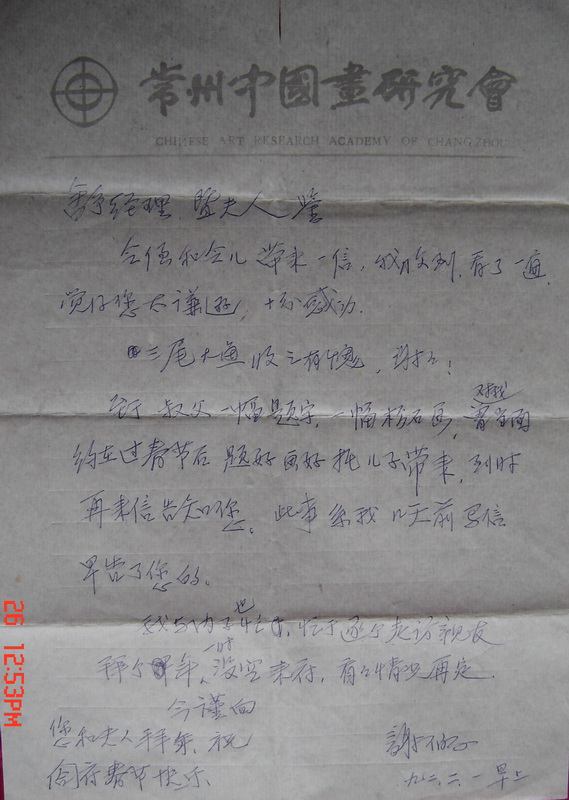 常州中國畫研究會
CHINESE ART RESEARCH ACADEMY OF CHANGZHOU
经理 暨夫人 鉴
令侄和令儿 带来一信, 我收到, 看了一遍,
觉得您太谦逊, 十分感动.
三尾大鱼收之有愧, 谢谢!
至于 叔父一幅题字, 一幅松石画,
约在过春节后 题好画好 托儿子带来, 到时
再来信告知您。此事系我 几天前写信
早告了您的。
我与内 也忙于逐个走访亲友
拜个早年, 一时没空来府, 有待情况再定.
今谨向
您和夫人拜年, 祝
阖府春节快乐.
谢伯子
九二.二.一 早上
26 12:53PM